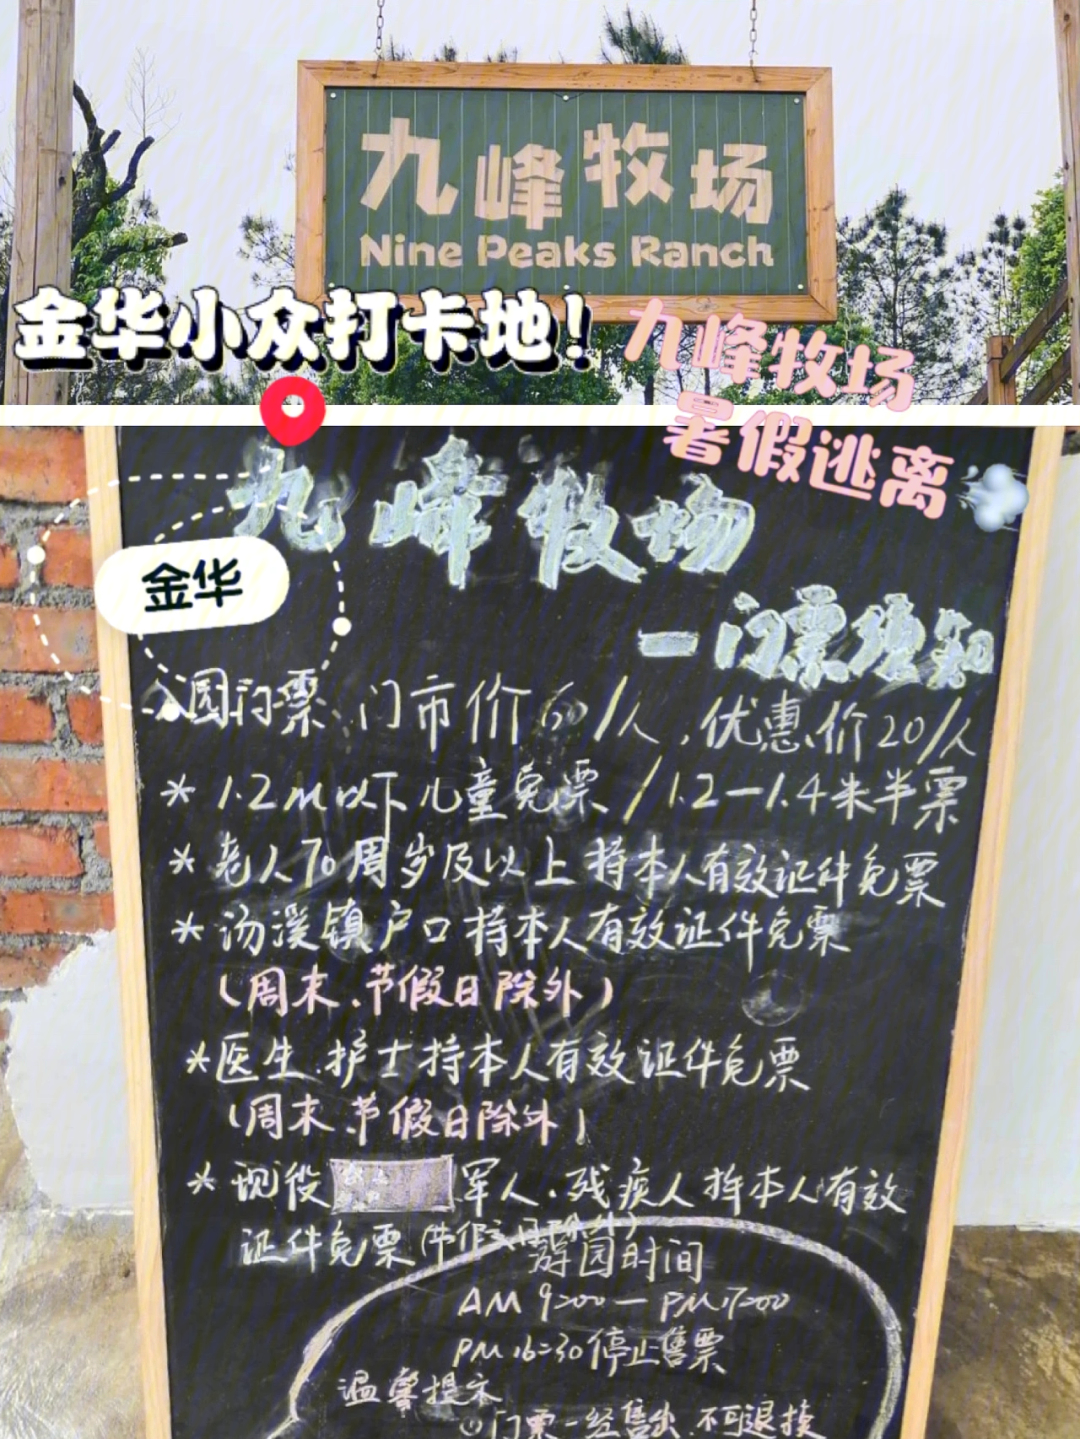 九峰牧场
Nine Peaks Ranch
金华小众打卡地!
九峰牧场
暑假逃离
九峰牧场
金华
一门票须知
入园门票 门市价60/人,优惠价20/人
* 1.2m以下儿童免票/1.2-1.4米半票
* 老人70周岁及以上持本人有效证件免票
* 汤溪镇户口持本人有效证件免票
(周末、节假日除外)
*医生、护士持本人有效证件免票
(周末、节假日除外)
* 现役 军人、残疾人持本人有效
证件免票(节假日除外)
游园时间
AM 9:00—PM 17:00
PM 16:30停止售票
温馨提示
①门票一经售出,不可退换